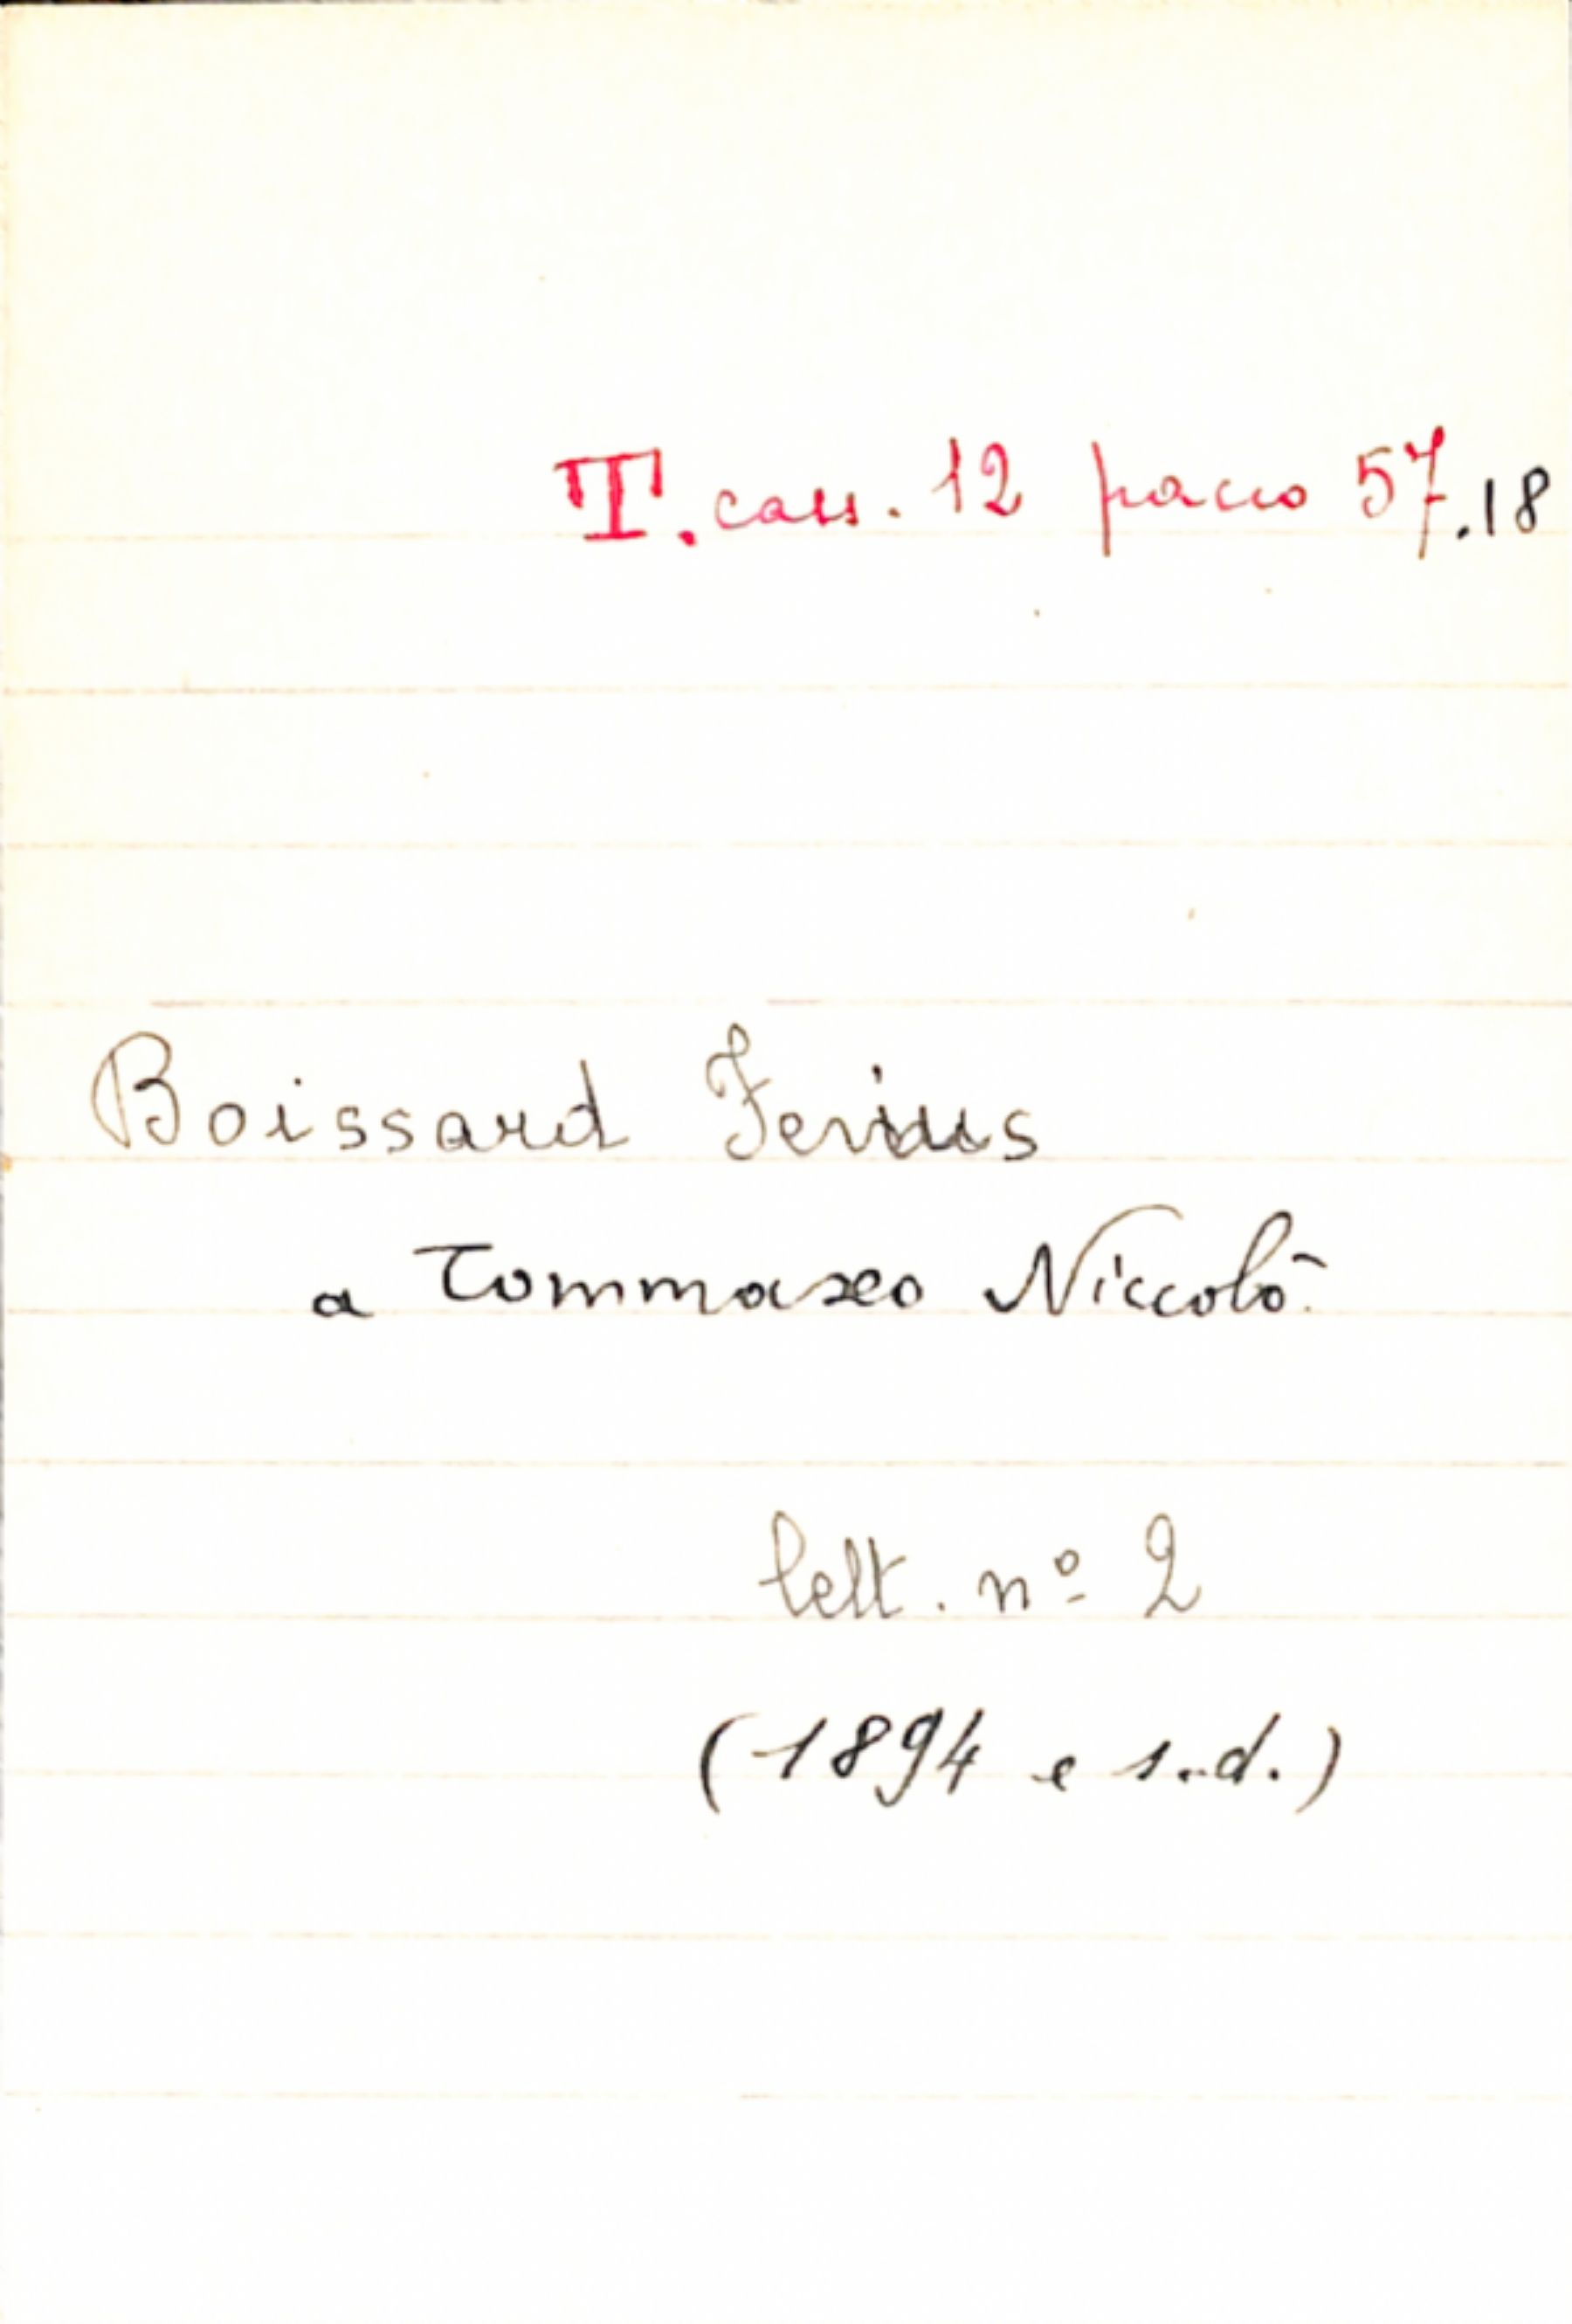 T. cass. 12 pacco 57.18
Boissard
a Tommaseo Niccolò
lett. nº 2
(1894 e s.d.)